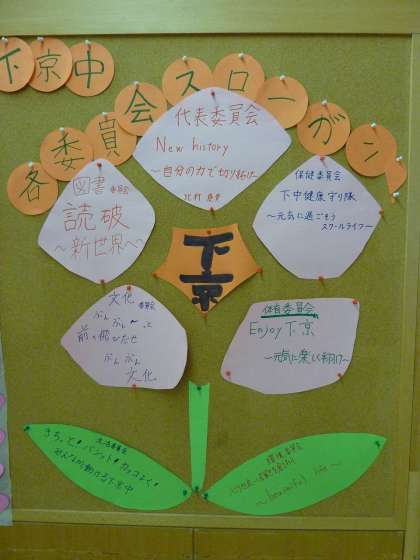 下京中
各委員会スローガン
代表委員会
New history
～自分の力で切り拓け～
図書委員会
読破
～新世界へ～
保健委員会
下中健康守り隊
～元気に過ごそう
スクールライフ～
下京
文化委員会
ぶんぶん
文化
体育委員会
Enjoy下京
～元気に楽しく
生活委員会
きちっと！バシッと！カッコよく！
みんなが輝ける下京中
環境委員会
～beautiful life～